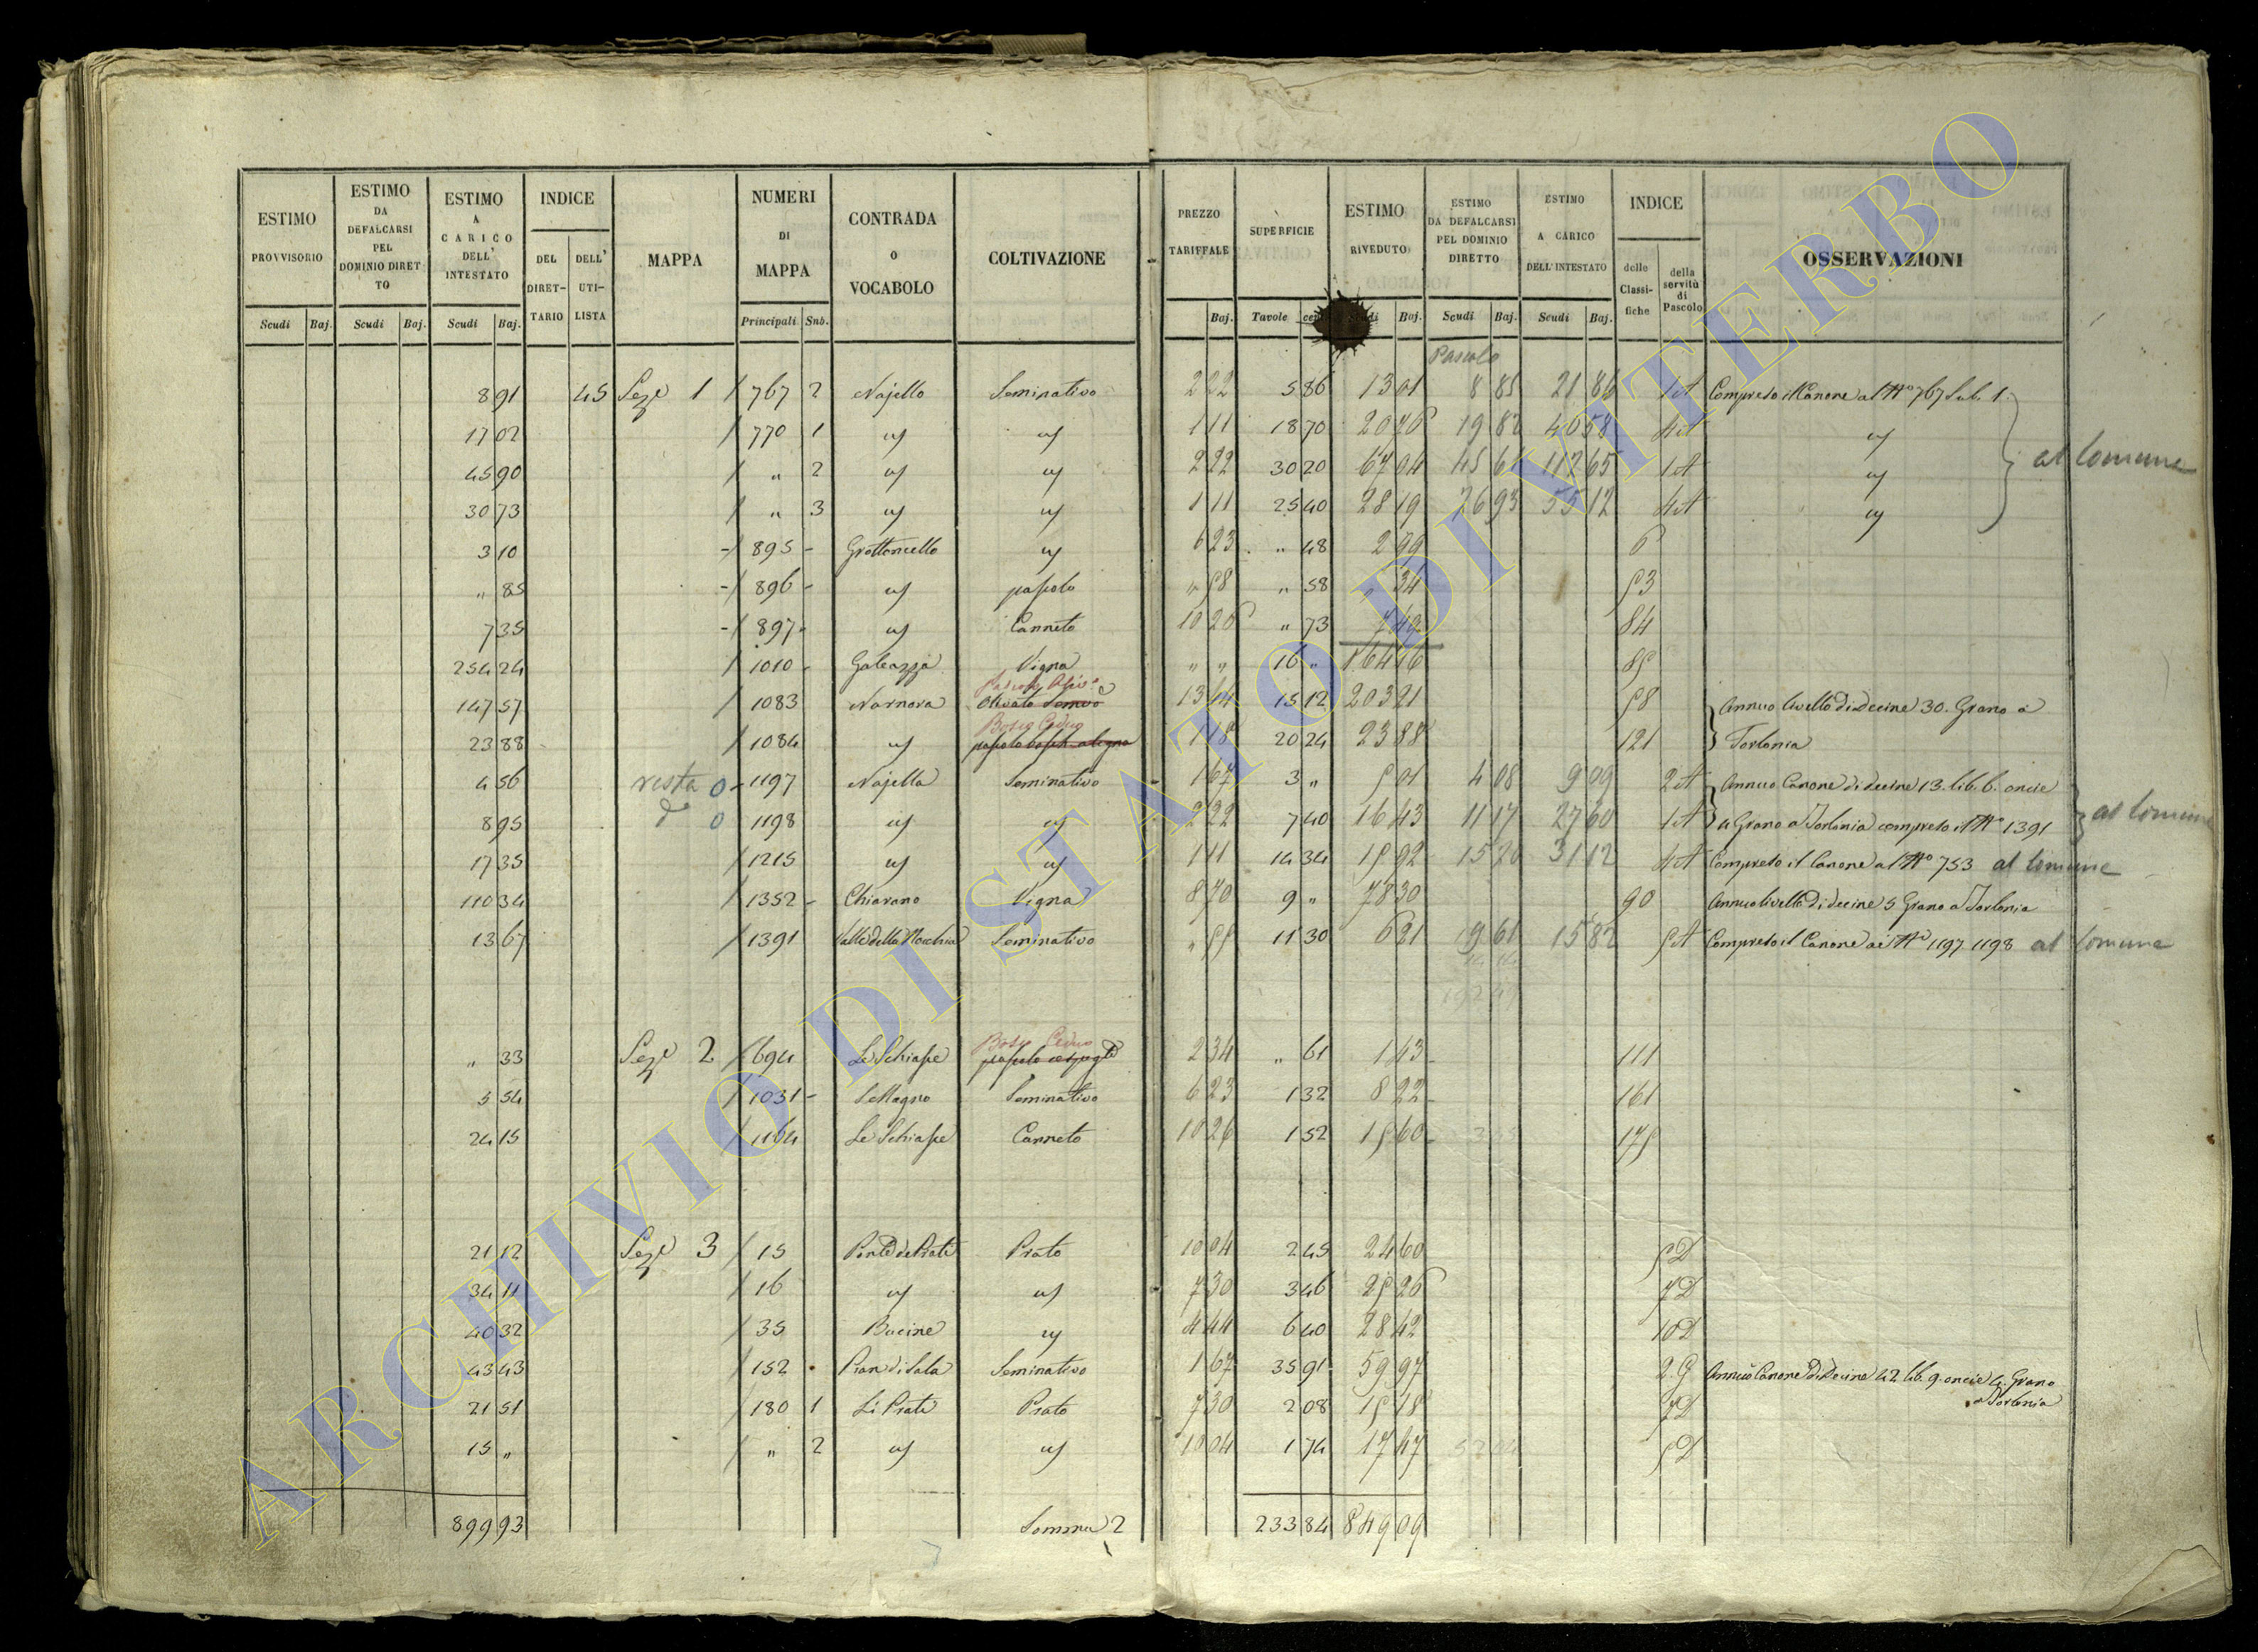 ESTIMO PROVVISORIO | ESTIMO DA DEFALCARSI PEL DOMINIO DIRETTO | ESTIMO A CARICO DELL' INTESTATO | INDICE | MAPPA | NUMERI DI MAPPA | CONTRADA O VOCABOLO | COLTIVAZIONE | PREZZO TARIFFALE | SUPERFICIE | ESTIMO RIVEDUTO | ESTIMO DA DEFALCARSI PEL DOMINIO DIRETTO | ESTIMO A CARICO DELL'INTESTATO | INDICE | OSSERVAZIONI
DEL DIRETTARIO | DELL' UTILISTA | delle Classifiche | della servitù di Pascolo
Scudi | Baj. | Scudi | Baj. | Scudi | Baj. | Principali | Sub. | Baj. | Tavole | Baj. | Scudi | Baj. | Scudi | Baj.
Pascolo
8 91 | 45 | Seze 1 | 767 | 2 | Najello | Seminativo | 2 22 | 5 86 | 13 01 | 8 85 | 21 86 | 1A | Compreso il Canone al No 767 Sub. 1.
17 02 | 770 | 1 | " | " | 1 11 | 18 70 | 20 76 | 19 82 | 40 58 | 4A | "
45 90 | " | 2 | " | " | 2 22 | 30 20 | 67 04 | 45 61 | 112 65 | 1A | " | al Comune
30 73 | " | 3 | " | " | 1 11 | 25 40 | 28 19 | 26 93 | 55 12 | 4A | "
3 10 | 895 | Grottoncello | " | 6 23 | " 48 | 2 99 | 6
" 85 | 896 | " | pascolo | " 58 | " 58 | " 34 | 53
7 35 | 897 | " | Canneto | 10 26 | " 73 | 7 49 | 84
254 24 | 1010 | Galeazza | Vigna | " " | 16 " | 164 16 | 85
147 57 | 1083 | Nornova | Olivato | 13 44 | 15 12 | 203 21 | 58 | Annuo livello di decine 30. Grano a
Bosco Ceduo
23 88 | 1084 | " | 1 18 | 20 24 | 23 88 | 121 | Torlonia
4 56 | resta 0 | 1197 | Najella | Seminativo | 1 67 | 3 " | 5 01 | 4 08 | 9 09 | 2A | Annuo Canone di decine 13. lib. 6. oncie
8 95 | 0 | 1198 | " | " | 2 22 | 7 40 | 16 43 | 11 17 | 27 60 | 1A | Grano a Torlonia compreso il No 1391 | al Comune
17 35 | 1215 | " | " | 1 11 | 14 34 | 15 92 | 15 20 | 31 12 | 4A | Compreso il Canone al No 753 al Comune
110 34 | 1352 | Chiarano | Vigna | 8 70 | 9 " | 78 30 | 90 | Annuo livello di decine 5 Grano a Torlonia
13 67 | 1391 | Valle della Nocchia | Seminativo | " 55 | 11 30 | 6 21 | 9 61 | 15 82 | 5A | Compreso il Canone ai Ni 1197 1198 al Comune
Bosco Ceduo
" 33 | Seze 2 | 694 | Le Schiape | pascolo cespugto | 2 34 | " 61 | 1 43 | 111
5 54 | 1031 | Seminativo | 6 23 | 1 32 | 8 22 | 161
24 15 | 1164 | Le Schiape | Canneto | 10 26 | 1 52 | 15 60 | 175
21 12 | Seze 3 | 15 | Ponte de Prati | Prato | 10 04 | 2 45 | 24 60 | 5D
34 11 | 16 | " | " | 7 30 | 3 46 | 25 26 | 7D
40 32 | 35 | Bucine | " | 4 44 | 6 40 | 28 42 | 10D
43 43 | 152 | Pian di Sala | Seminativo | 1 67 | 35 91 | 59 97 | 2G | Annuo Canone di decine 42 lib. 9. oncie 4. Grano
a Torlonia
21 51 | 180 | 1 | Li Prati | Prato | 7 30 | 2 08 | 15 18 | 7D
15 " | " | 2 | " | " | 10 04 | 1 74 | 17 47 | 5D
899 93 | Somma 2 | 233 84 | 849 09
ARCHIVIO DI STATO DI VITERBO